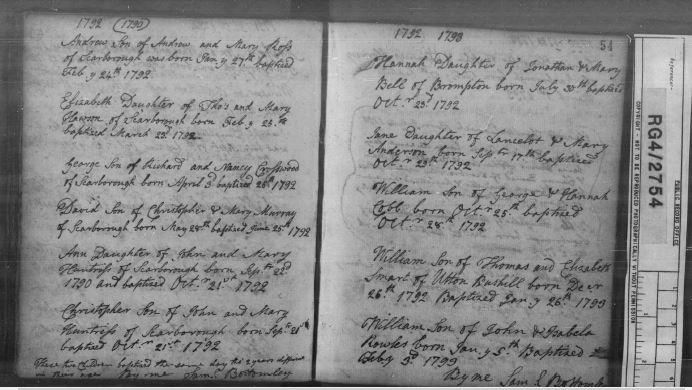 1792 (1790)
Andrew Son of Andrew and Mary Ross
of Scarborough was born Jan.y 27th baptized
Feb.y 24th 1792.
Elizabeth Daughter of Tho's and Mary
of Scarborough born Feb.y
baptized March 23 1792
George Son of Richard and Nancy Crosswood
of Scarborough born April 3d baptized 28th 1792
David Son of Christopher & Mary Murray
of Scarborough born May 28th baptized June 25th 1792
Ann Daughter of John and Mary
Huntress of Scarborough born Sep.tr 22d
1790 and baptized Oct.r 21st 1792
Christopher Son of John and Mary
Huntress of Scarborough born Sep.tr 21st
baptized Oct.r 21st 1792
These two Children baptized the same day tho 2 years difference
in their ages By me Sam.l Bottomley
1792 1793
54
Hannah Daughter of Jonathan & Mary
Bell of Brompton born July 30th baptized
Oct.r 23d 1792
Jane Daughter of Lancelot & Mary
Anderson born Sep.tr 17th baptized
Oct.r 23d 1792
William Son of George & Hannah
Cobb born Oct.r 25th baptized
Oct.r 28th 1792
William Son of Thomas and Elizabeth
Smart of Utton Bushill born Decr
26th 1792 Baptized Jan.y 26th 1793
William Son of John & Isabela
Rowles born Jan.y 5th Baptized
Feb.y 3d 1793
By me Sam.l Bottomley
RG4/2754
PUBLIC RECORD OFFICE
COPYRIGHT - NOT TO BE REPRODUCED PHOTOGRAPHICALLY WITHOUT PERMISSION
Reference:-
1
2